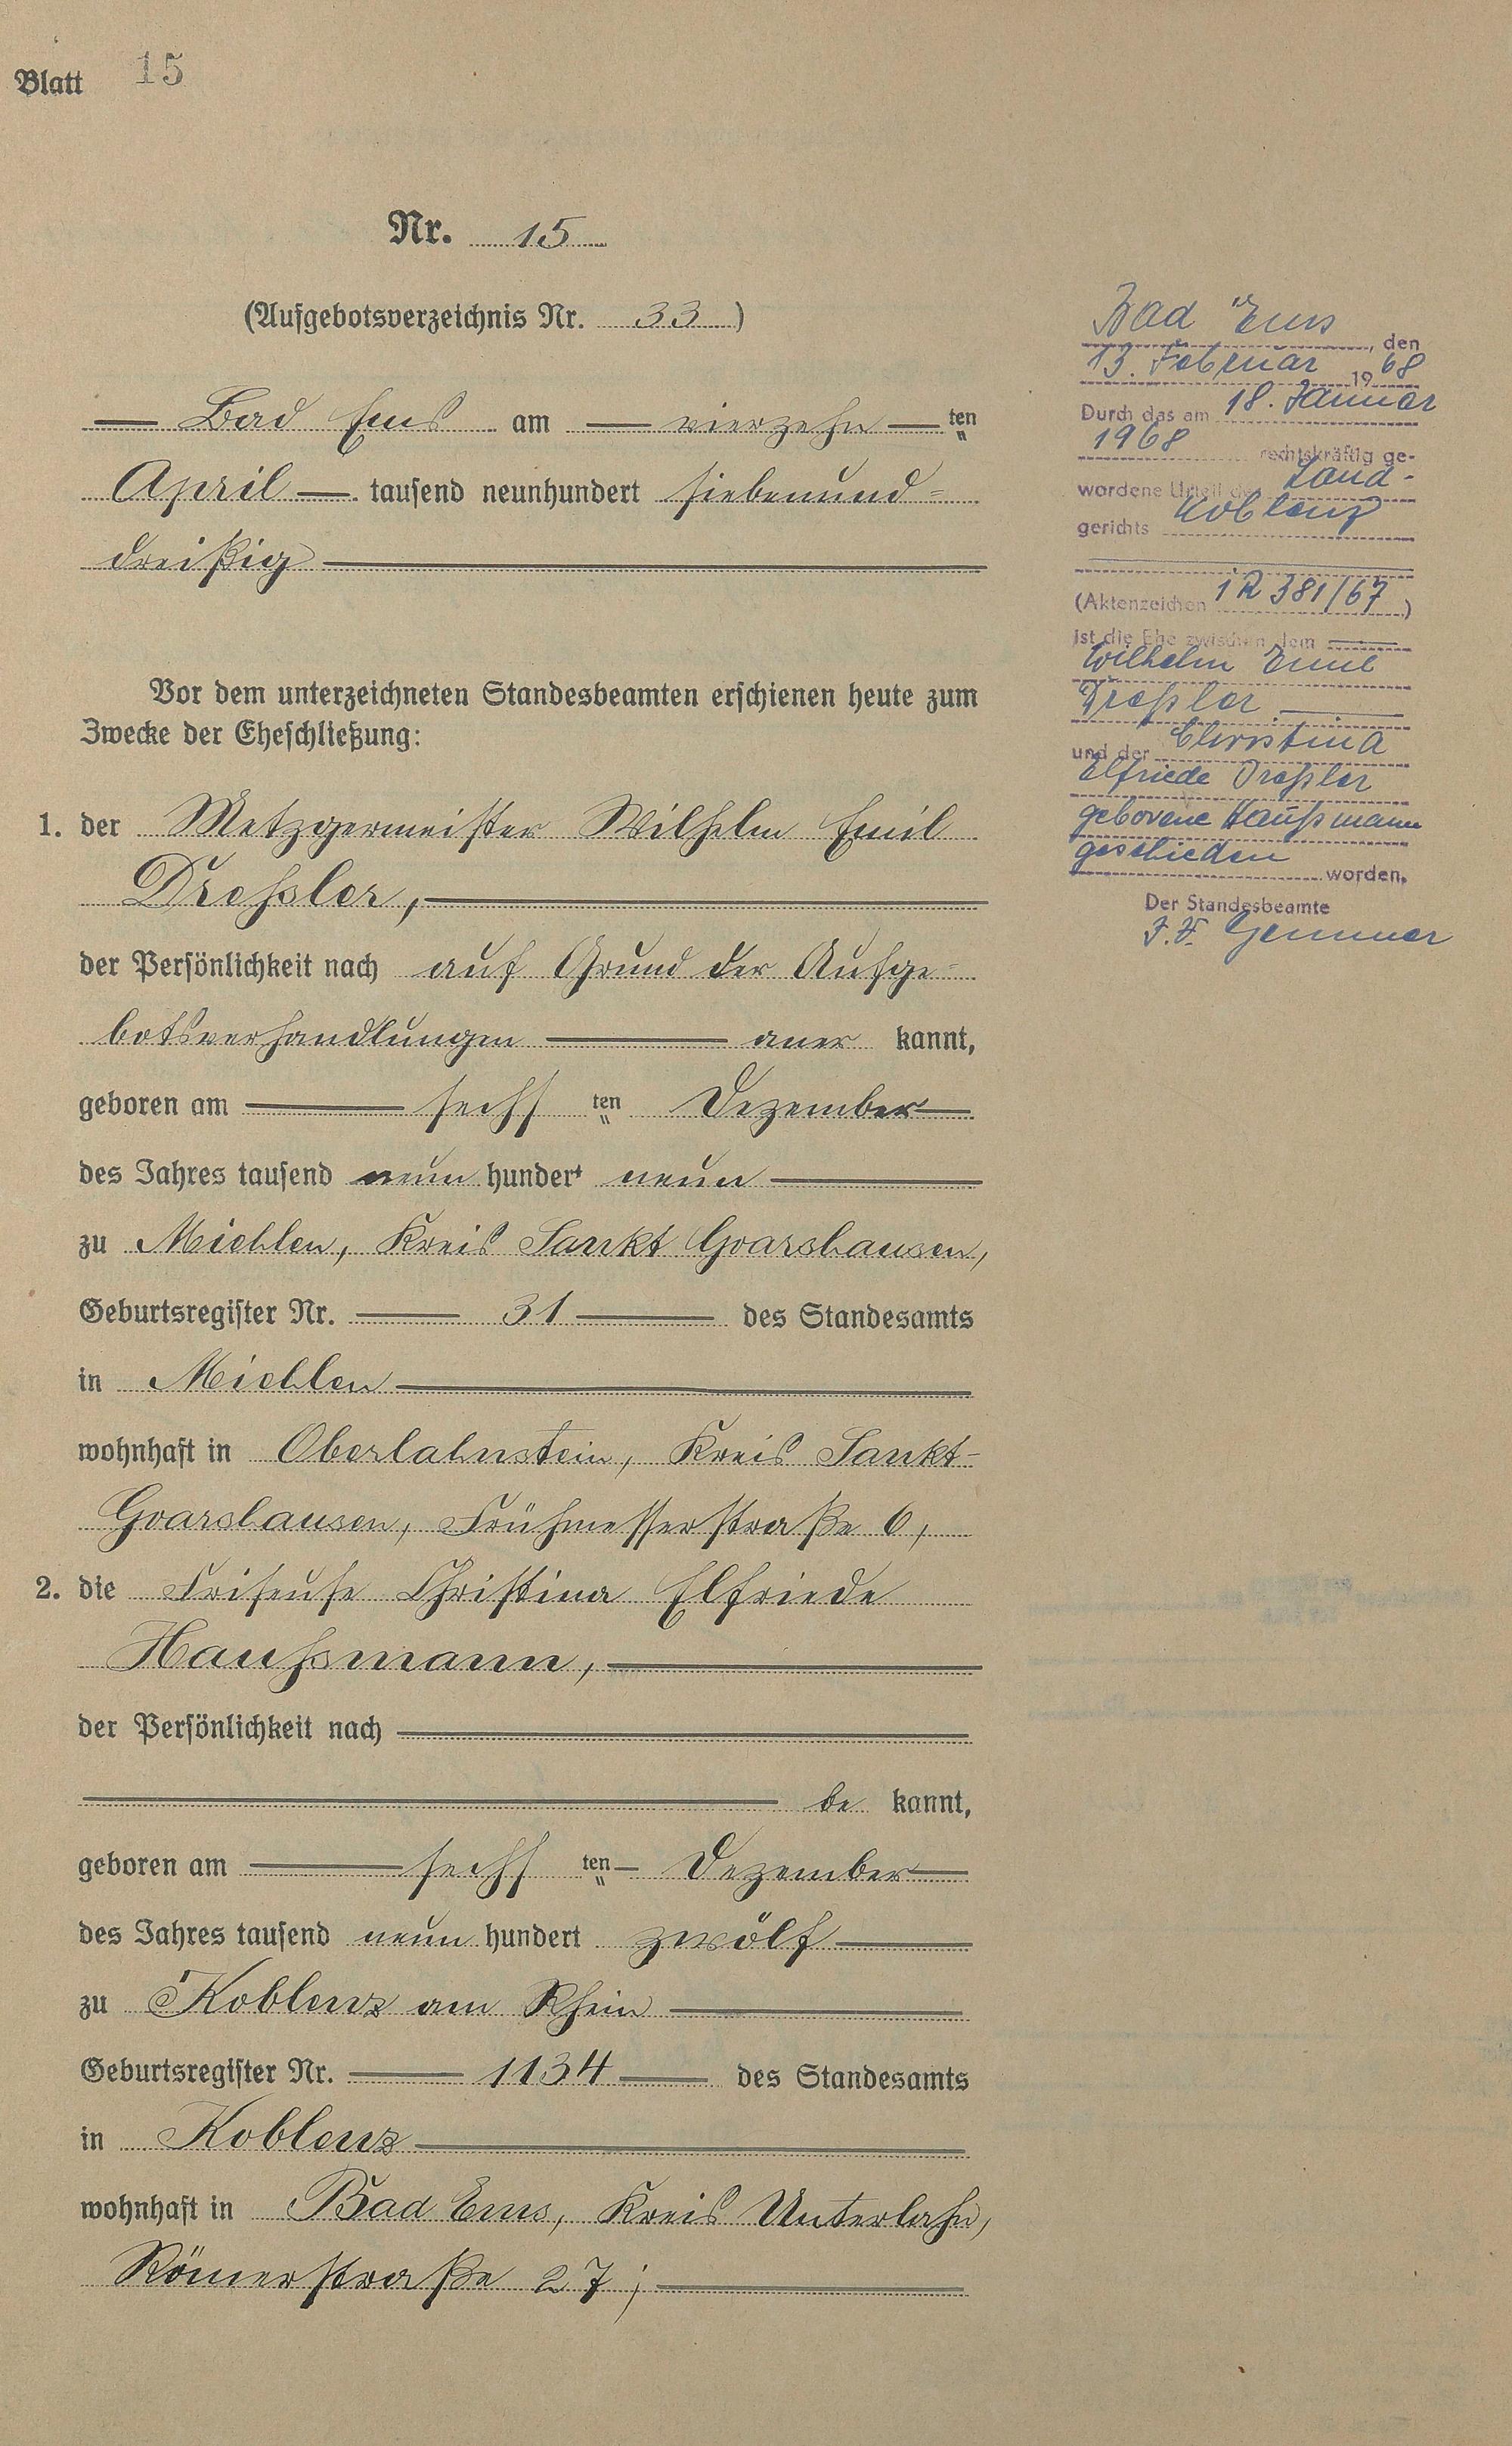 Blatt 15
Nr. 15
(Aufgebotsverzeichnis Nr. 33)
Bad Ems am vierzehn ten
April tausend neunhundert siebenund=
dreißig
Vor dem unterzeichneten Standesbeamten erschienen heute zum
Zwecke der Eheschließung:
1. der Metzgermeister Wilhelm Emil
Dressler,
der Persönlichkeit nach auf Grund der Aufge=
botsverhandlungen aner kannt,
geboren am sechs ten Dezember
des Jahres tausend neun hundert neun
zu Miehlen, Kreis Sankt Goarshausen,
Geburtsregister Nr. 31 des Standesamts
in Miehlen
wohnhaft in Oberlahnstein, Kreis Sankt-
Goarshausen, Frühmesserstraße 6,
2. die Friseuse Christina Elfriede
Haussmann,
der Persönlichkeit nach
be kannt,
geboren am sechs ten Dezember
des Jahres tausend neun hundert zwölf
zu Koblenz am Rhein
Geburtsregister Nr. 1134 des Standesamts
in Koblenz
wohnhaft in Bad Ems, Kreis Unterlahn,
Römerstraße 27;
Bad Ems, den
13. Februar 1968
Durch das am 18. Januar
1968 rechtskräftig ge-
wordene Urteil des Land-
gerichts Koblenz
(Aktenzeichen 1 R 381/67)
ist die Ehe zwischen dem
Wilhelm Emil
Dreßler
und der Christina
Elfriede Dreßler
geborene Haußmann
geschieden worden.
Der Standesbeamte